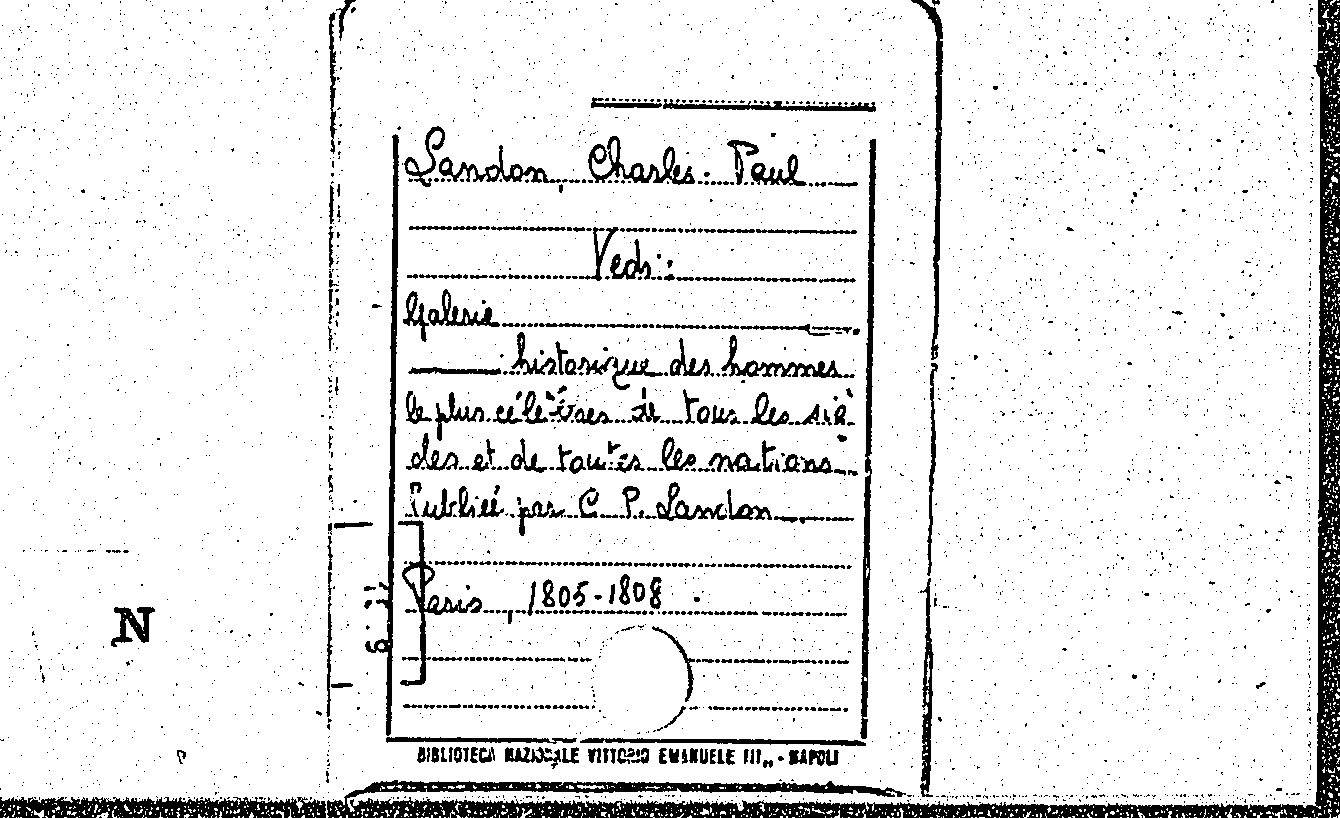 Landon, Charles-Paul
Vedi:
Galerie
historique des hommes
le plus célèbres de tous les siè
cles et de toutes les nations
Publieé par C. P. Landon
Paris, 1805-1808.
N
BIBLIOTECA NAZIONALE VITTORIO EMANUELE III,, - NAPOLI